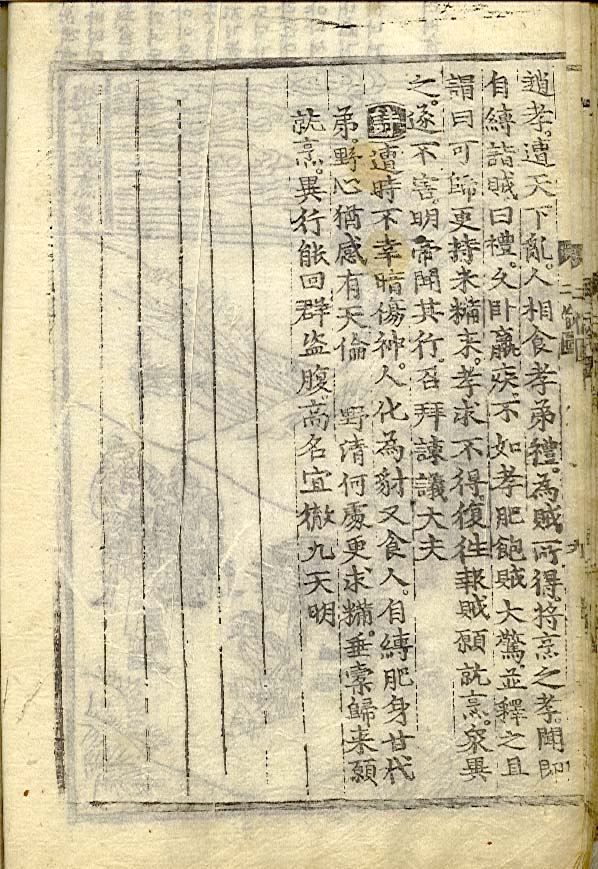 二倫圖
九
趙孝。遭天下亂。人相食孝弟禮。為賊所得將烹之孝聞即
自縛詣賊曰禮。久卧羸疾。不如孝肥飽賊大驚。並釋之且
謂曰可歸更持米糒来。孝求不得。復往報賊願就烹。衆異
之。遂不害。明帝聞其行。召拜諫議大夫
詩遭時不幸暗傷神。人化為豺又食人。自縛肥身甘代
弟。野心猶感有天倫 野清何處更求糒。垂橐歸来願
就烹。異行能回群盗腹。高名宜徹九天明